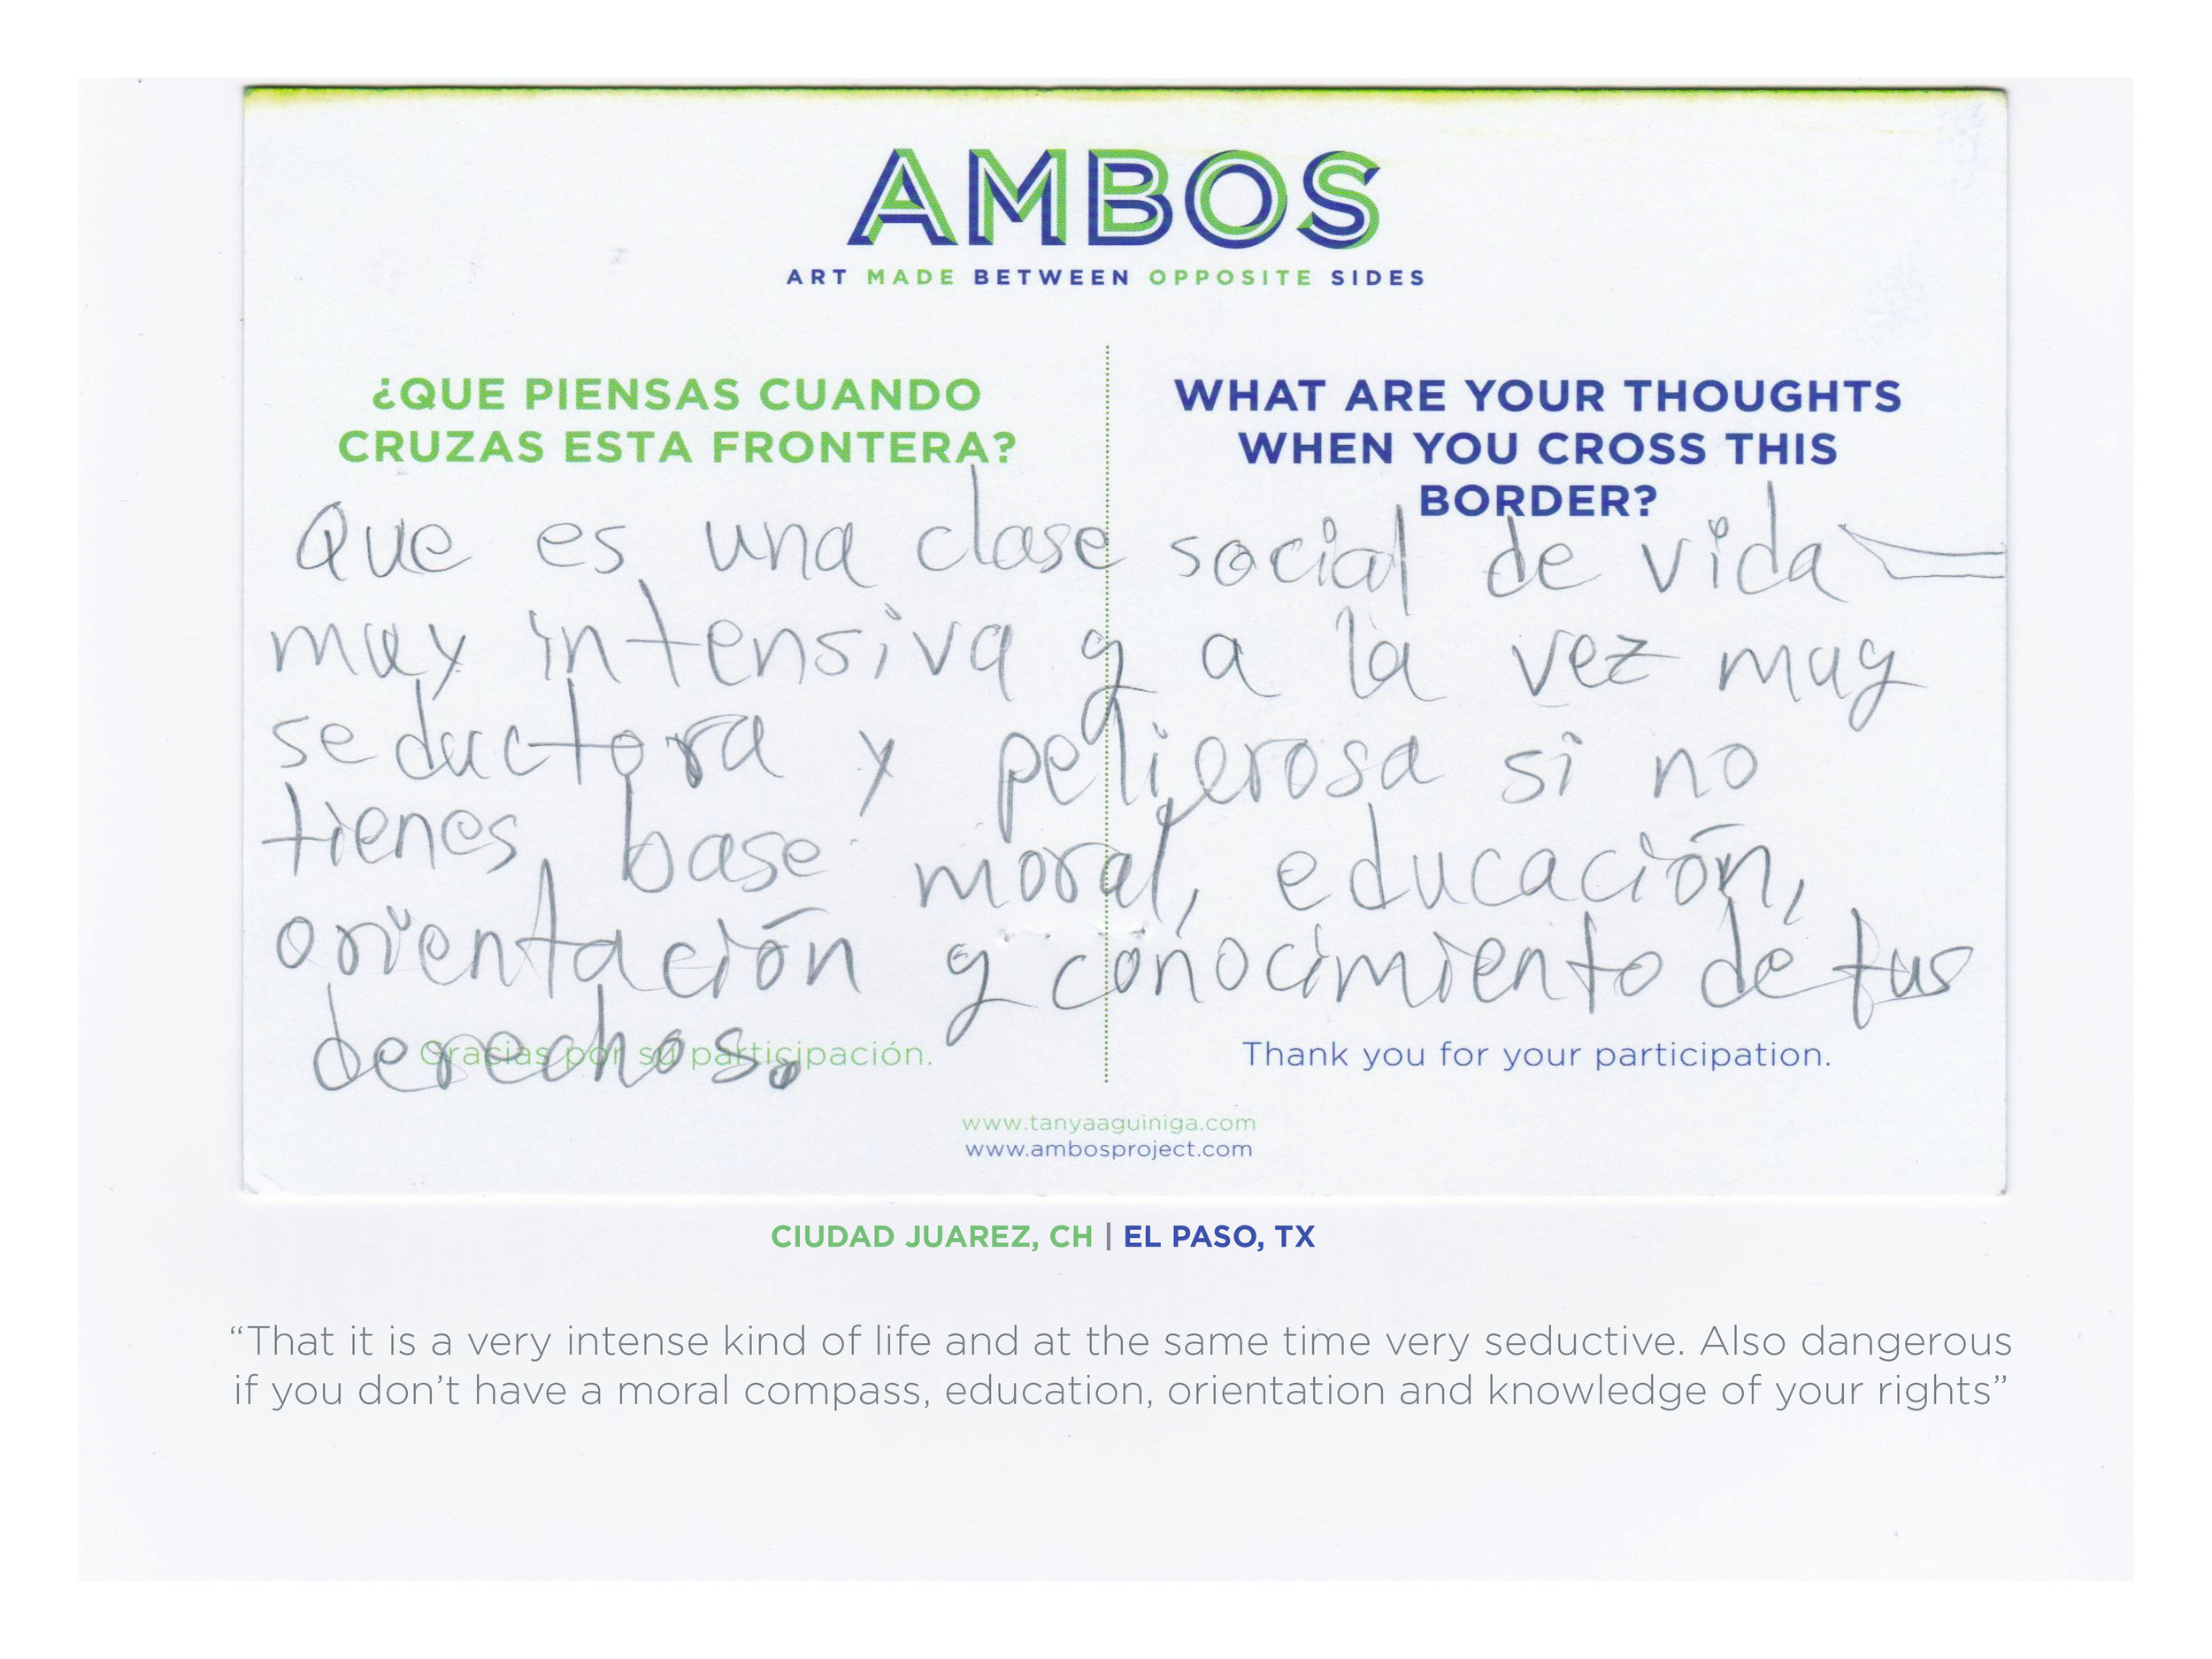 AMBOS
ART MADE BETWEEN OPPOSITE SIDES
¿QUE PIENSAS CUANDO
CRUZAS ESTA FRONTERA?
WHAT ARE YOUR THOUGHTS
WHEN YOU CROSS THIS
BORDER?
Que es una clase social de vida
muy intensiva y a la vez muy
seductora y peligrosa si no
tienes base moral, educación,
orientación y conocimiento de tus
derechos.
Gracias por su participación.
Thank you for your participation.
www.tanyaaguiniga.com
www.ambosproject.com
CIUDAD JUAREZ, CH | EL PASO, TX
“That it is a very intense kind of life and at the same time very seductive. Also dangerous
if you don’t have a moral compass, education, orientation and knowledge of your rights”